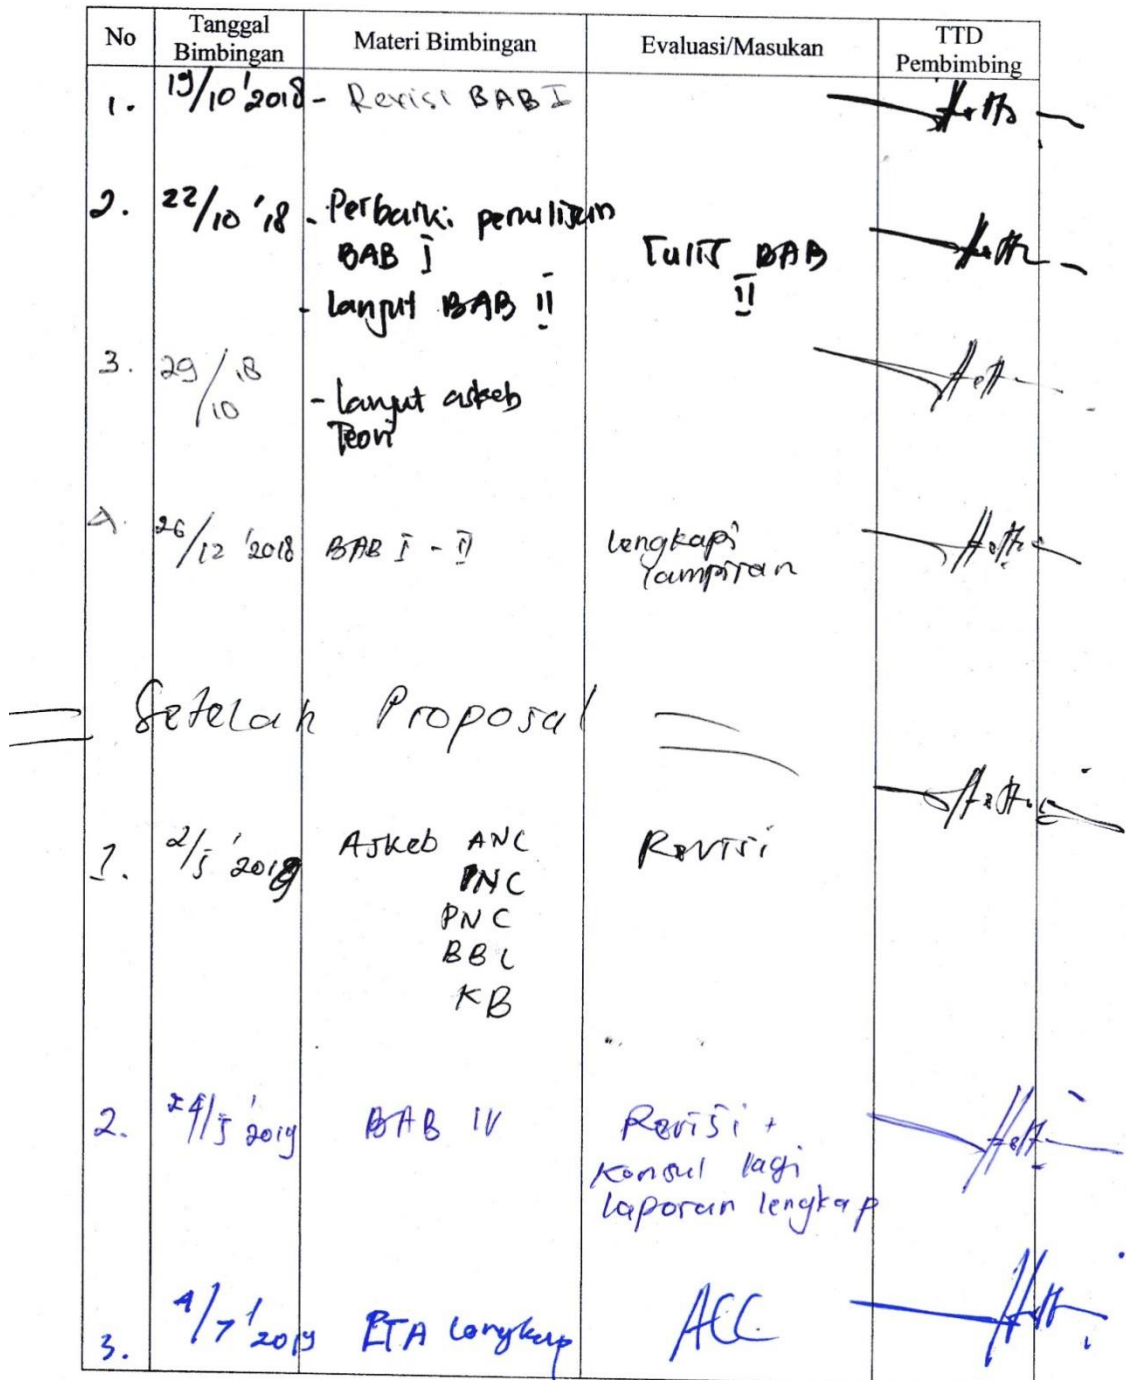 No Tanggal Bimbingan Materi Bimbingan Evaluasi/Masukan TTD Pembimbing
1. 19/10 '2018 - Revisi BAB I
2. 22/10 '18 - Perbaiki penulisan
BAB I Tulis BAB
II
- lanjut BAB II
3. 29/10 18
- lanjut askeb
Teori
4. 26/12 '2018 BAB I - II lengkapi
lampiran
Setelah Proposal
1. 2/5 '2019 Askeb ANC Revisi
INC
PNC
BBL
KB
2. 24/5 '2019 BAB IV Revisi +
Konsul lagi
laporan lengkap
3. 4/7 '2019 LTA lengkap ACC